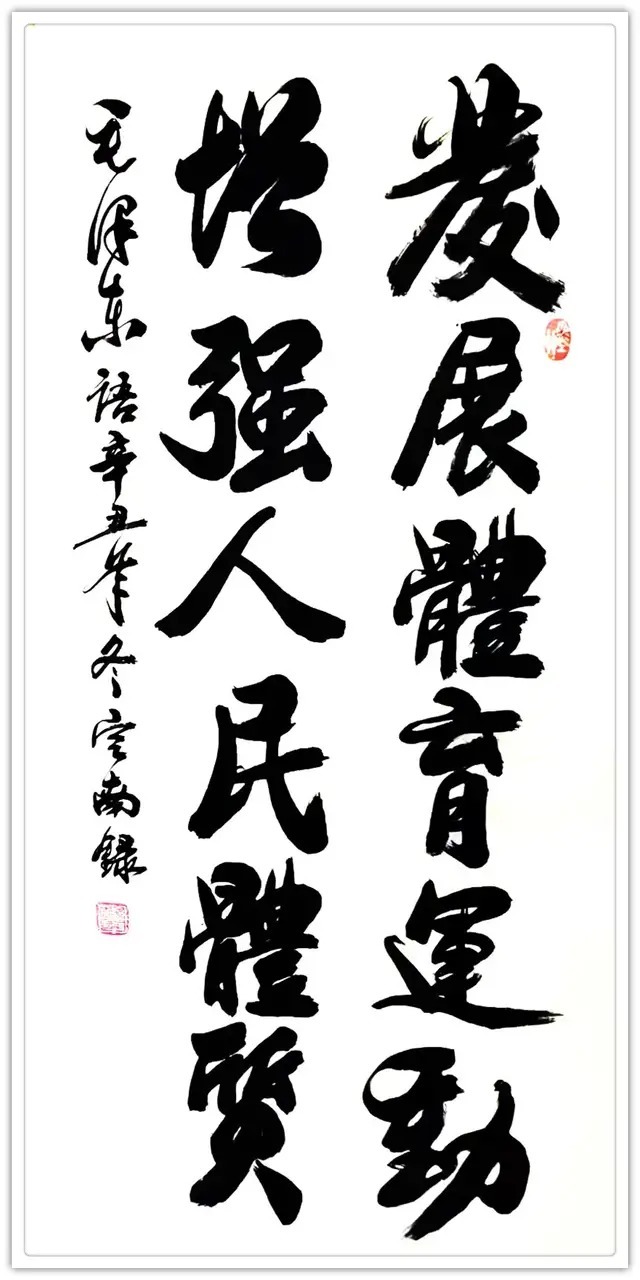 發展體育運動
增强人民體質
毛澤東語辛丑年冬南録